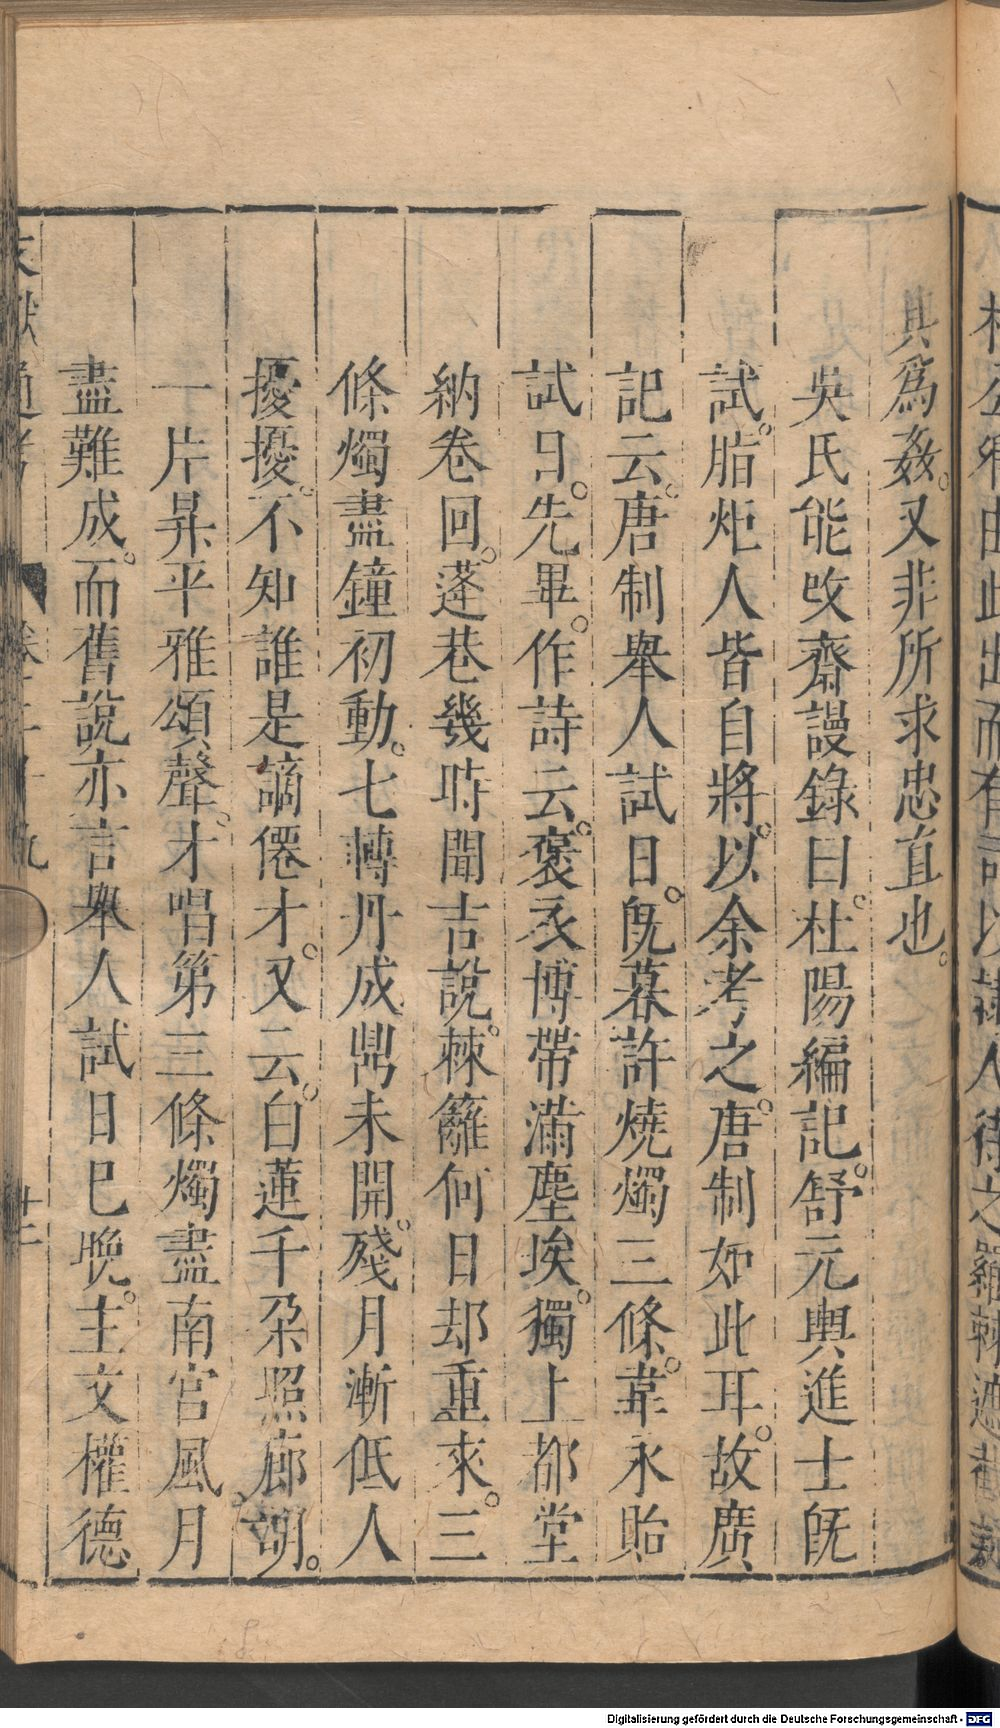 其爲姦又非所求忠直也
吳氏能攺齋謾錄曰杜陽編記舒元輿進士旣
試脂炬人皆自將以余考之唐制如此耳故廣
記云唐制舉人試日旣暮許燒燭三條韋永貽
試日先畢作詩云襃衣博帶滿塵埃獨上都堂
納卷回蓬巷幾時聞吉說棘籬何日却重來三
條燭盡鐘初動七轉丹成鼎未開殘月漸低人
擾擾不知誰是謫僊才又云白蓮千朶照廊明
一片昇平雅頌聲才唱第三條燭盡南宮風月
盡難成而舊說亦言舉人試日已晚主文權德
文獻通考
Digitalisierung gefördert durch die Deutsche Forschungsgemeinschaft - DFG